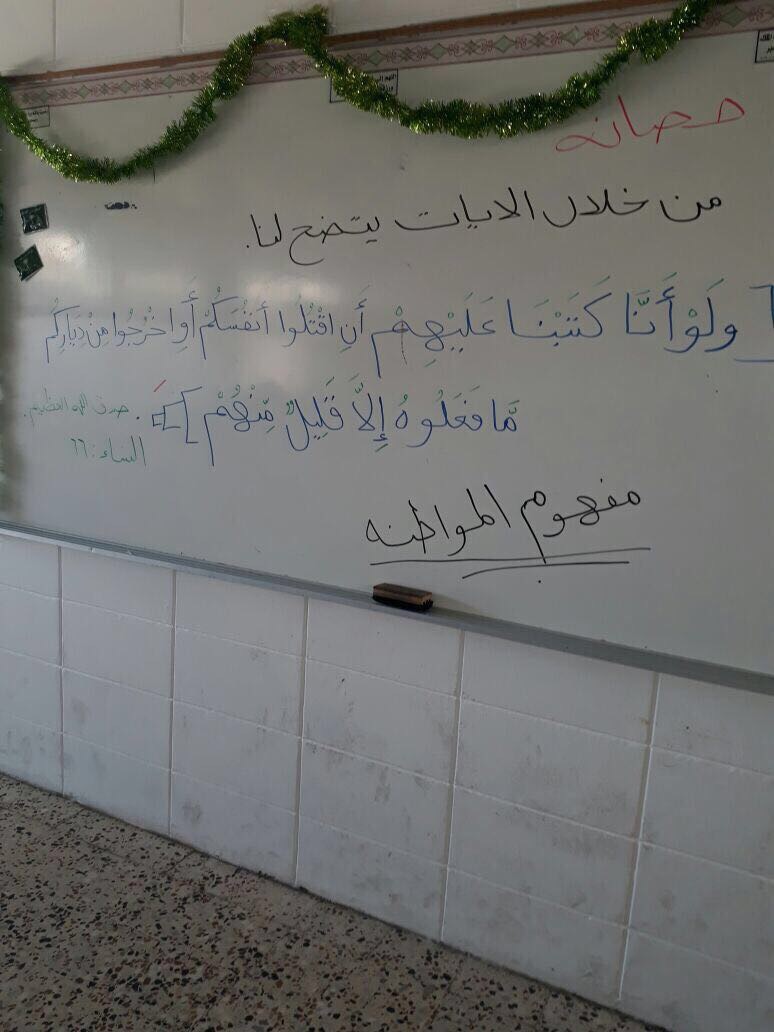 حصانه
من خلال الايات يتضح لنا.
ولَوْ أَنَّا كَتَبْنَا عَلَيْهِمْ أَنِ اقْتُلُوا أَنفُسَكُمْ أَوِ اخْرُجُوا مِنْ دِيَارِكُم
مَّا فَعَلُوهُ إِلاَّ قَلِيلٌ مِّنْهُمْ . صدق الله العظيم.
النساء: ٦٦
مفهوم المواطنه